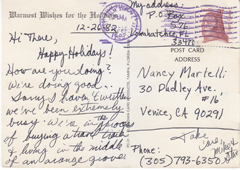 Warmest Wishes for the
12-20-82
Hi There,
Happy Holidays!
How are you doing?
We're doing good..
Sorry I haven't written
we've been extremely
busy! We're in the
of buying a
& living in the middle
of an orange grove
My address:
P.O. Box
Loxahatchee, FL
33470
POST CARD
ADDRESS
Nancy Martelli
30 Dudley Ave.
#16
Venice, CA 90291
Take
Care
Phone:
(305) 793-6350